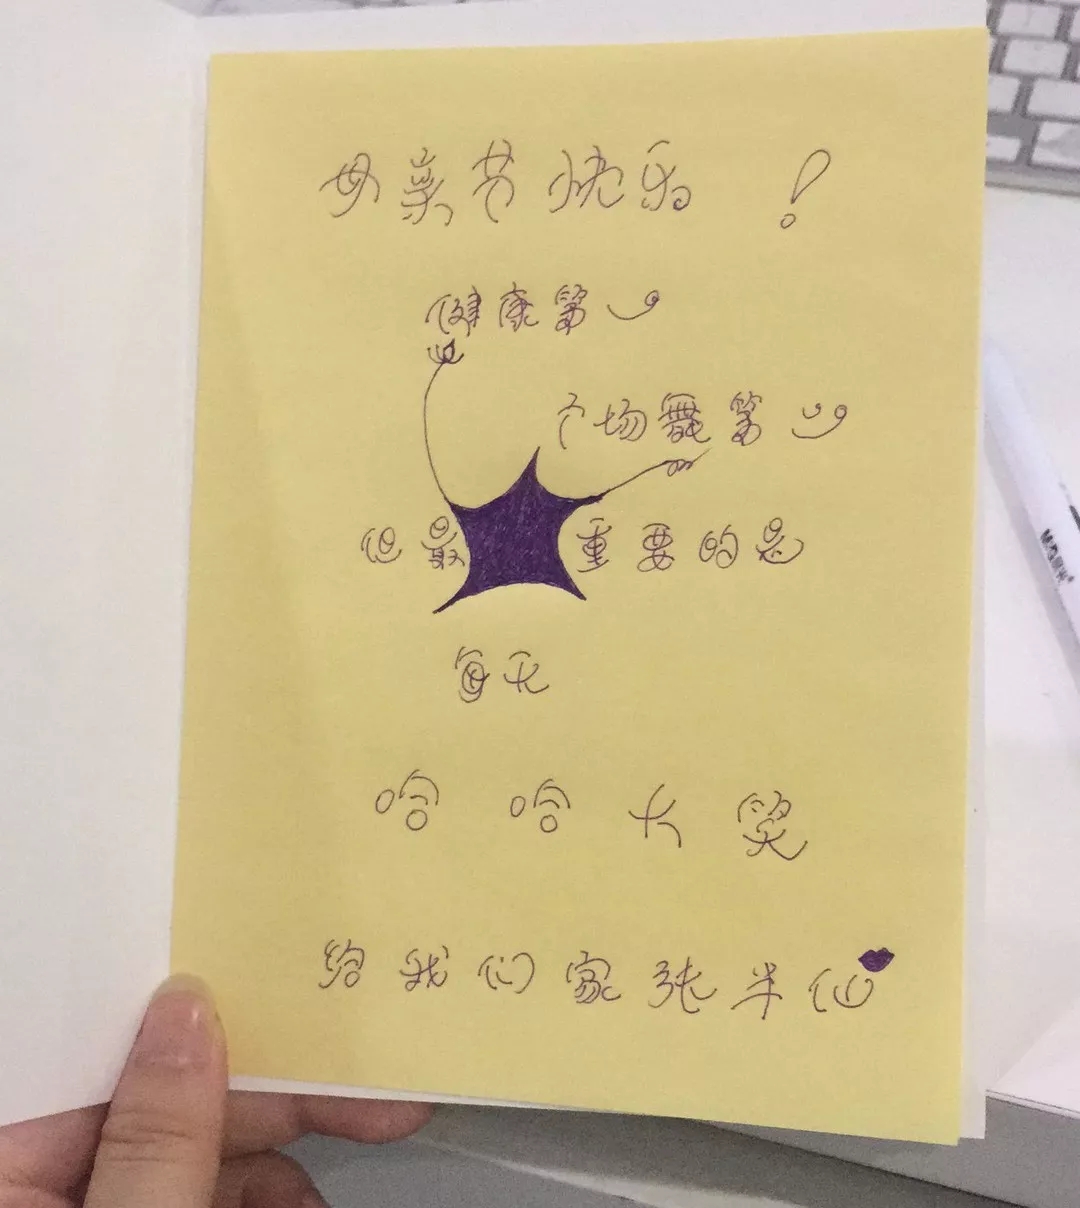 母亲节快乐！
健康第一
广场舞第二
但最重要的是
每天
哈哈大笑
给我们家张米仙
M&G晨光